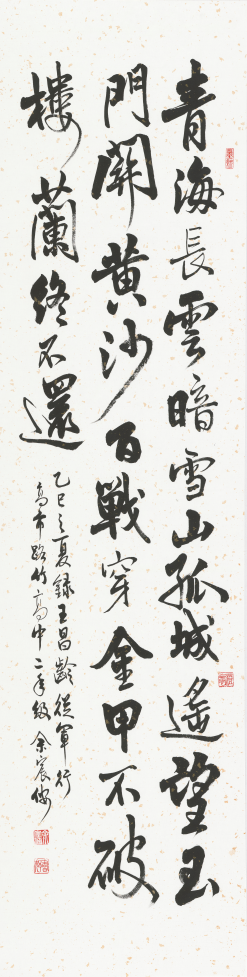 青海長雲暗雪山孤城遙望玉
門關黃沙百戰穿金甲不破
樓蘭終不還
乙巳之夏錄王昌齡從軍行
高市路竹高中二年級余宸